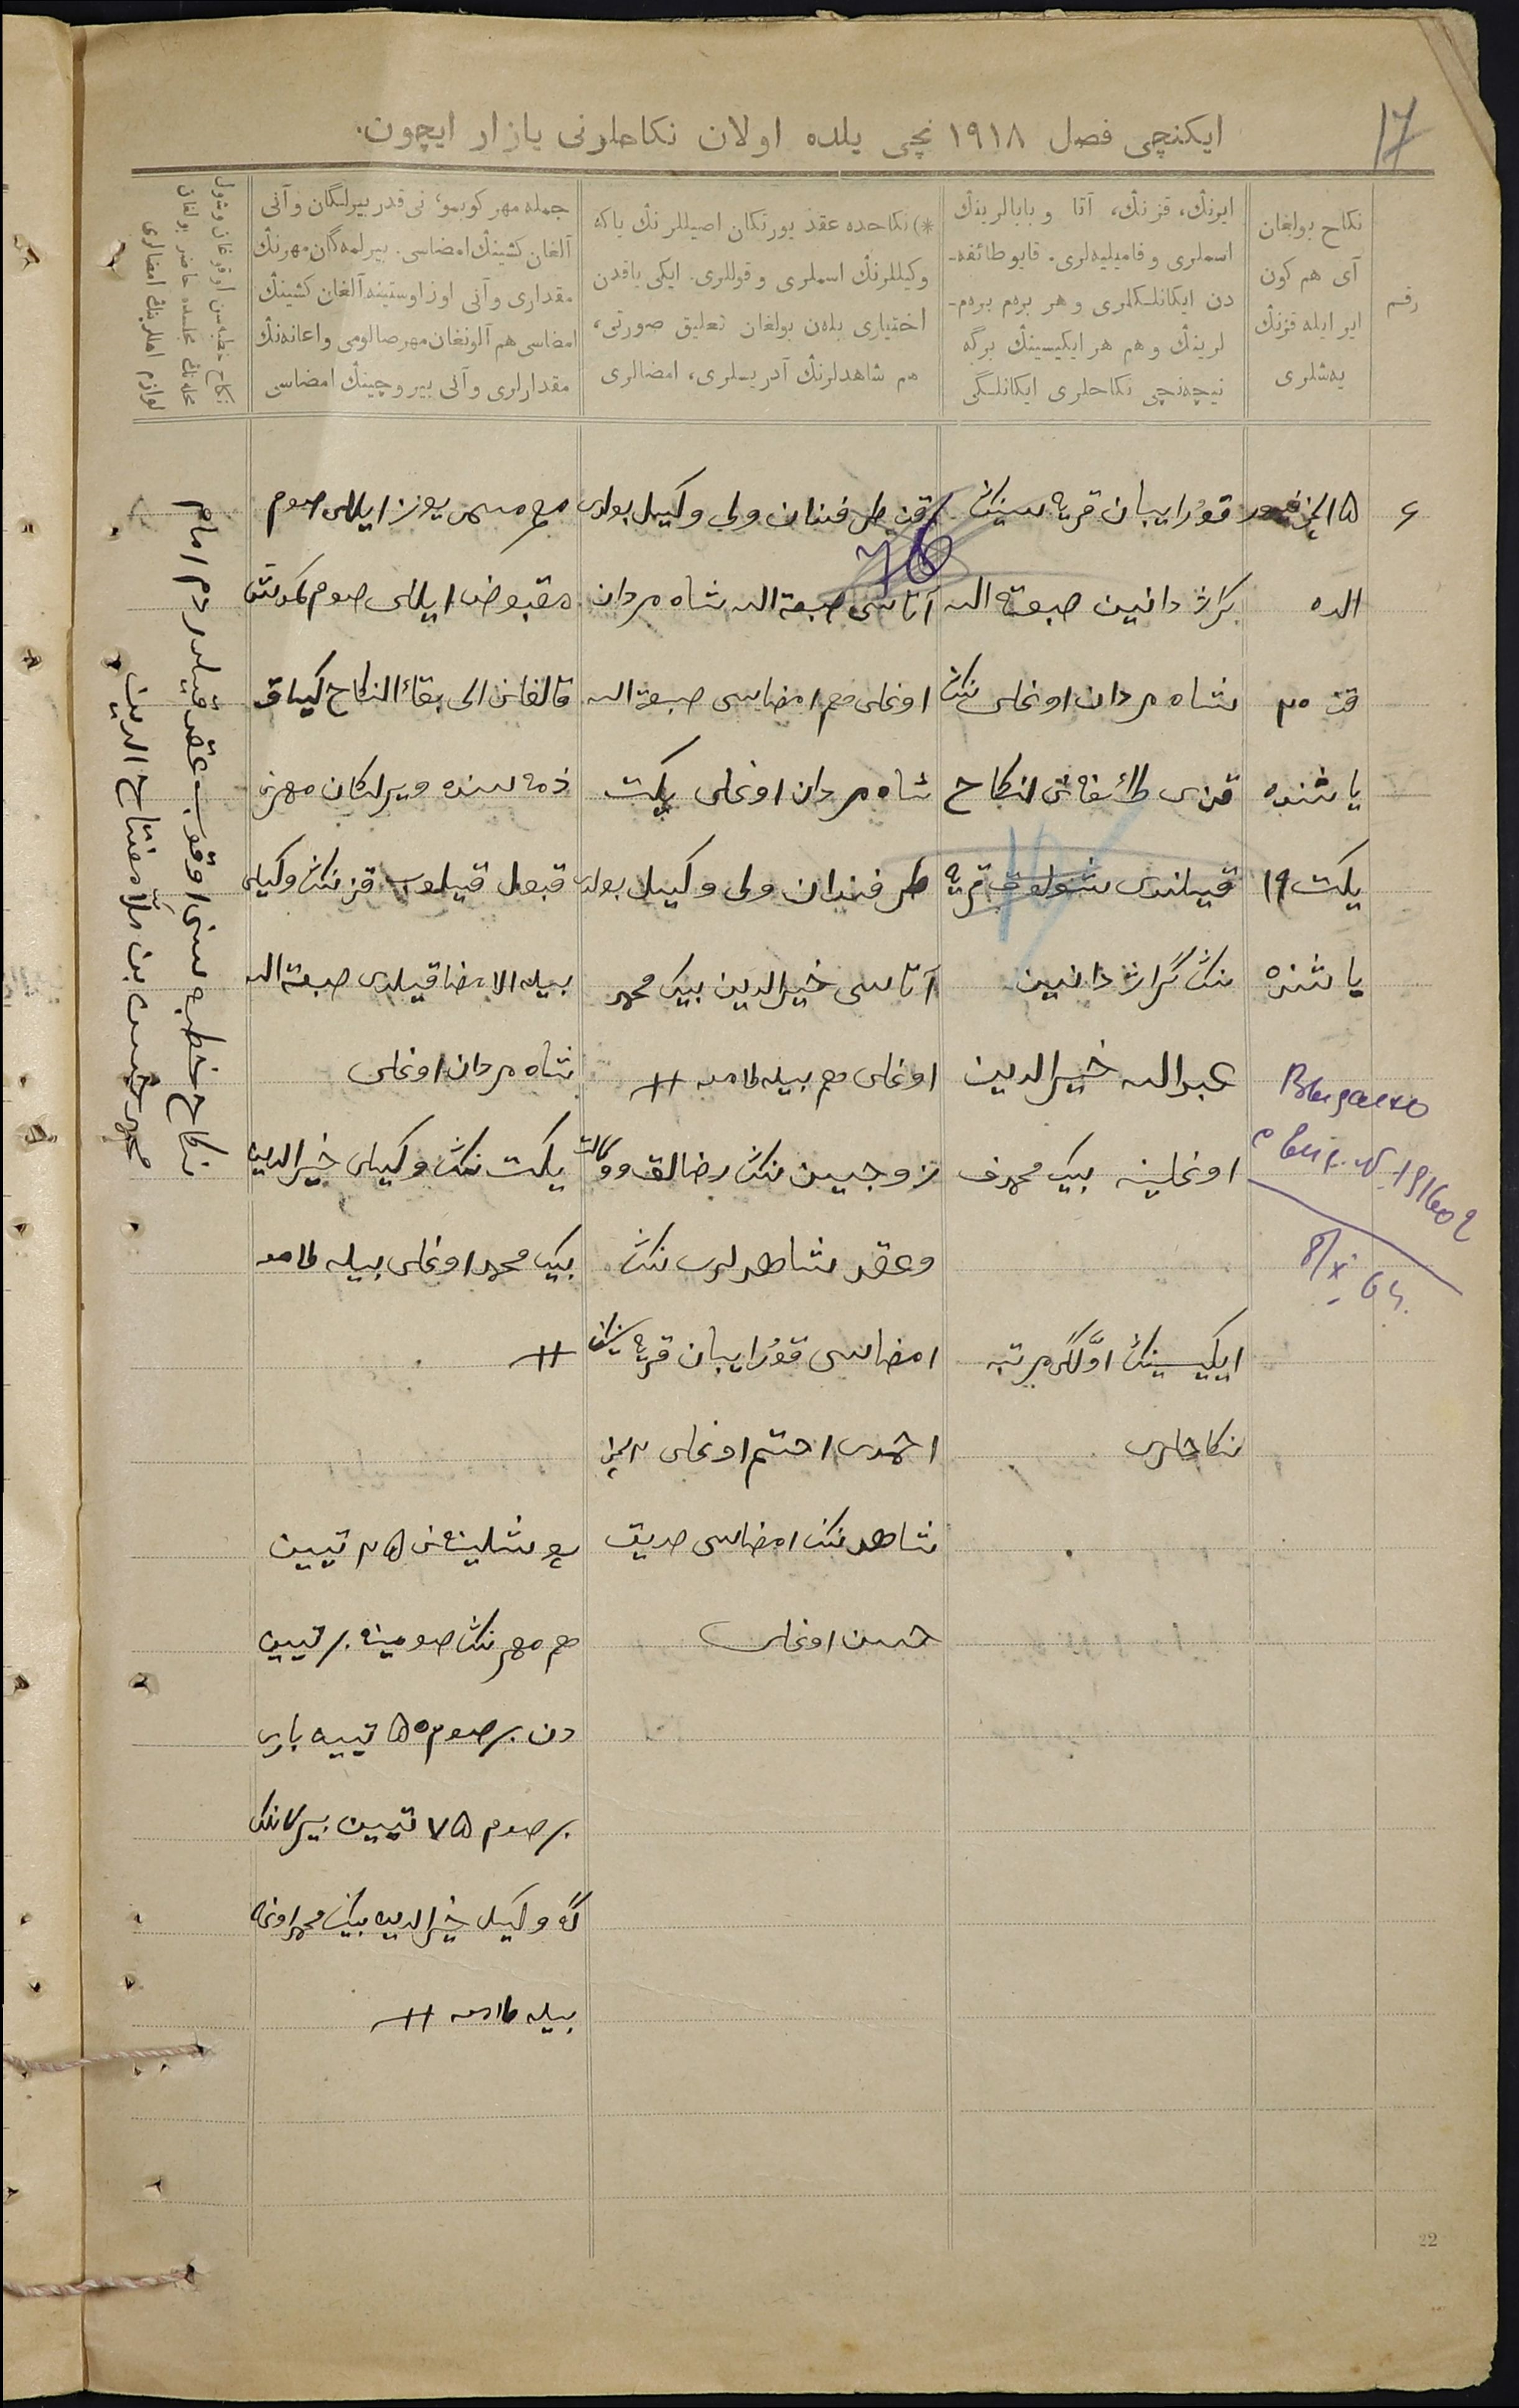 17
ایکنچی فصل ۱۹۱۸ نچی یلده اولان نکاحلرنی یازار ایچون.
رقم
نکاح بولغان
آی هم کون
ایر ایله قزنڭ
یه‌شلری
ایرنڭ، قزنڭ، آتا و بابالرینڭ
اسملری و فامیلیه‌لری. قایو طائفه‌ـ
دن ایکانلکلری و هر برم برم‌ـ
لرینڭ و هم هر ایکیسینڭ برگه
نیچه‌نچی نکاحلری ایکانلـگی
*) نکاحده عقد یورتکان اصیللر نڭ یاکه
وکیللرنڭ اسملری و قوللری. ایکی یاقدن
اختیاری بله‌ن بولغان تعلیق صورتی،
هم شاهدلرنڭ آدریسلری، امضالری
جمله مهر کوبمو، نی قدر بیرلـگان و آنی
آلغان کشینڭ امضاسی. بیرلمه‌گان مهرنڭ
مقداری و آنی اوز اوستینه آلغان کشینڭ
امضاسی هم آلونغان مهر صالومی و اعانه‌نڭ
مقدارلری و آنی بیروچینڭ امضاسی
نکاح خطبه‌سن اوقوغان و شول
محله‌نڭ مجلسده حاضر بولغان
لوازم اهللرینڭ امضالری
۶
۱۵
الده
قز ۲۰
یاشنده
یکت ۱۹
یاشنده
قوُرایبان قریه سینڭ
گراژدانین صبغة الله
شاه مردان اوغلی ننڭ
قزی طائفه‌تی نکاح
قیلندی شولوق قریه
ننڭ گراژدانین
عبدالله خیرالدین
اوغلینه بیک محمدف
ایکیسینڭ اوّلگی مرتبه
نکاحلری
قز طرفندان ولی وکیل بولدی
76
آتاسی صبغة الله شاه مردان
اوغلی هم امضاسی صبغة الله
شاه مردان اوغلی یکت
طرفندان ولی وکیل بولدی
آتاسی خیرالدین بیک محمد
اوغلی هم بیله طامعه
زوجین ننڭ رضالق و وکالت
وعقد شاهدلری ننڭ
امضاسی قوُرایبان قریه ننڭ
احمدی احتم اوغلی
شاهد ننڭ امضاسی صدیق
حسن اوغلی
مهر مسمی یوز ایللی صوم
مقبوض ایللی صوم
قالغانی الی بقاء النکاح کیاو
ذمه سنده ویرلکان مهرنی
قبول قیلوب قز ننڭ وکیلی
بیله الامضا قیلدی صبغة الله
شاه مردان اوغلی
یکت ننڭ وکیلی خیرالدین
بیک محمد اوغلی بیله طامعه
پوشلینه‌سی ۲۵ تیین
هم مهر ننڭ صومینه بر تیین
دن بر صوم ۵۰ تیین باری
بر صوم ۷۵ تیین بیرکاننڭ
گه وکیل خیرالدین بیک محمد اوغلی
بیله طامعه
نکاح خطبه سنی اوقوب عقد قیلدردم امام
محمد حبیب بن ملا مفتاح الدین
Выдано
8/X 64.
22